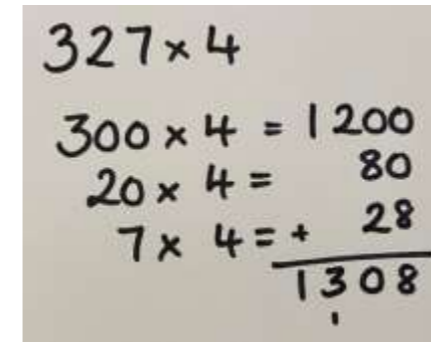 327 × 4
300 × 4 = 1200
20 × 4 = 80
7 × 4 = + 28
1308
1